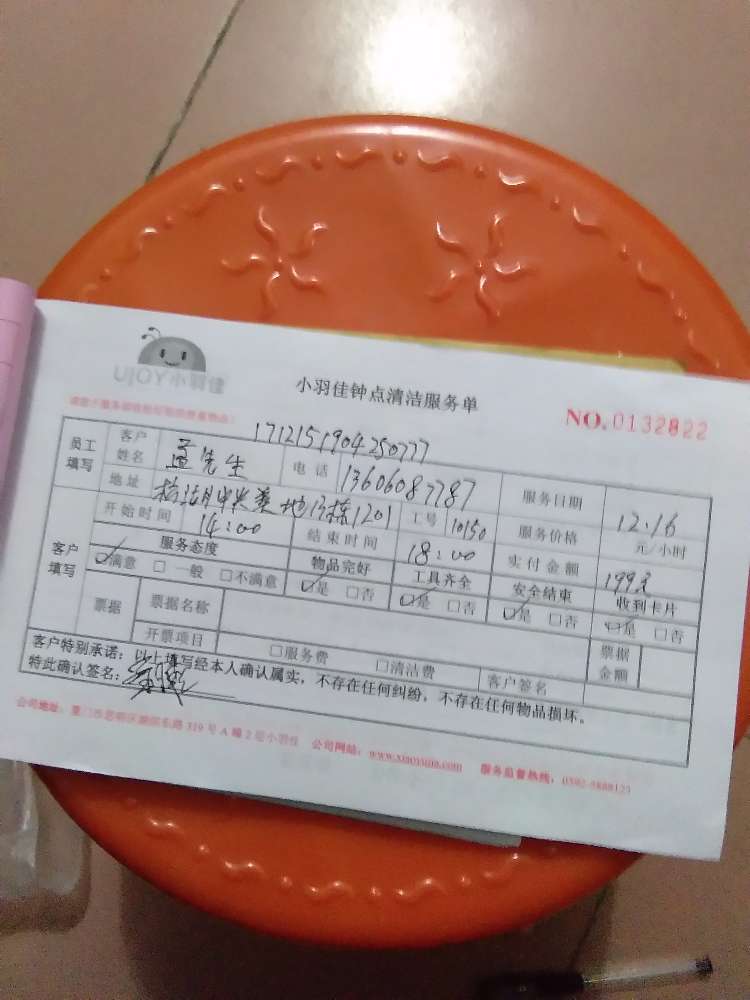 UJOY小羽佳
小羽佳钟点清洁服务单
NO.0132822
员工填写 客户姓名 孟先生 1712151904250777 电话 13606087787 服务日期 12.16
地址 中央美地13栋1201 工号 10150 服务价格 元/小时
开始时间 14:00 结束时间 18:00 实付金额 199元
客户填写 服务态度 物品完好 工具齐全 安全结束 收到卡片
☑满意 □一般 □不满意 ☑是 □否 ☑是 □否 ☑是 □否 ☑是 □否
票据 票据名称 票据金额
开票项目 □服务费 □清洁费 客户签名
客户特别承诺:以上填写经本人确认属实,不存在任何纠纷,不存在任何物品损坏。
特此确认签名:
公司地址:厦门市思明区湖滨东路319号A幢2层小羽佳 公司网站:www.xiaoyujia.com 服务监督热线:0592-5888123